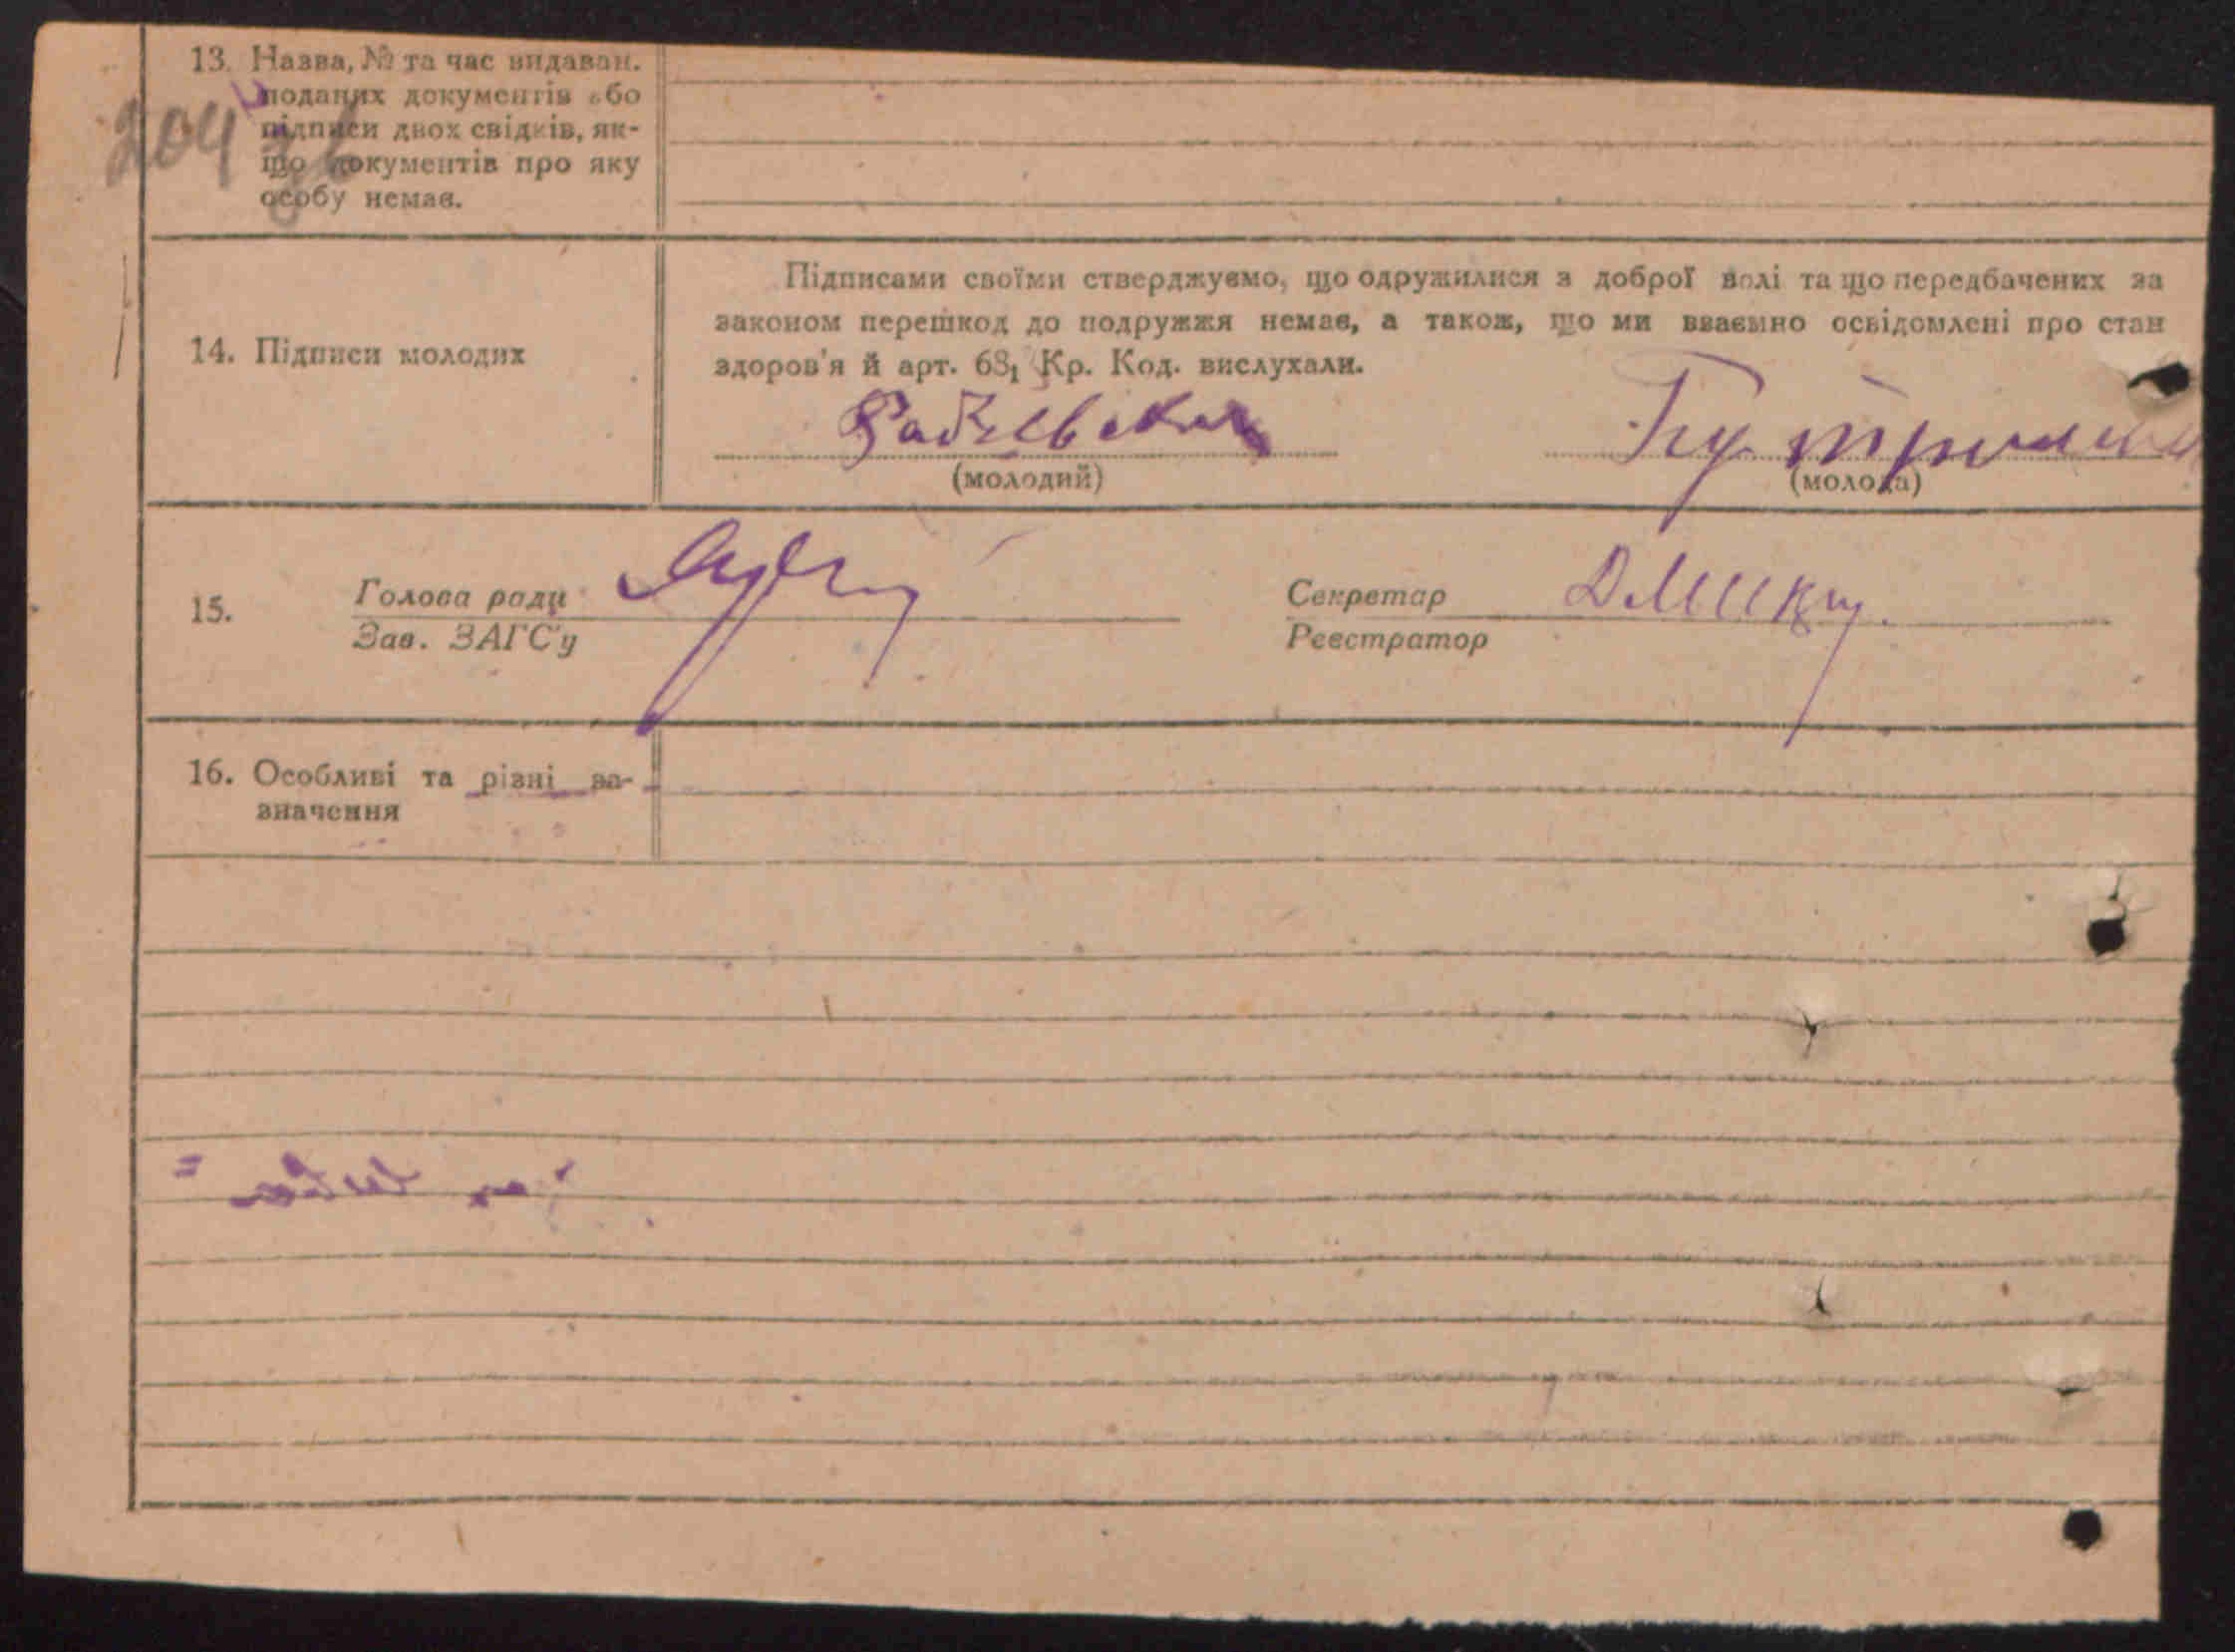 13. Назва, № та час видаван.
поданих документів або
підписи двох свідків, як-
що документів про яку
особу немає.
204 зв
Підписами своїми стверджуємо, що одружилися з доброї волі та що передбачених за
законом перешкод до подружжя немає, а також, що ми взаємно освідомлені про стан
здоров'я й арт. 68₁ Кр. Код. вислухали.
14. Підписи молодих
(молодий)
(молода)
15.
Голова ради
Зав. ЗАГС'у
Секретар
Реєстратор
16. Особливі та різні за-
значення